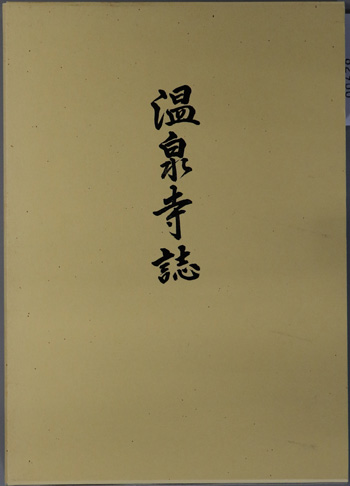 温泉寺誌